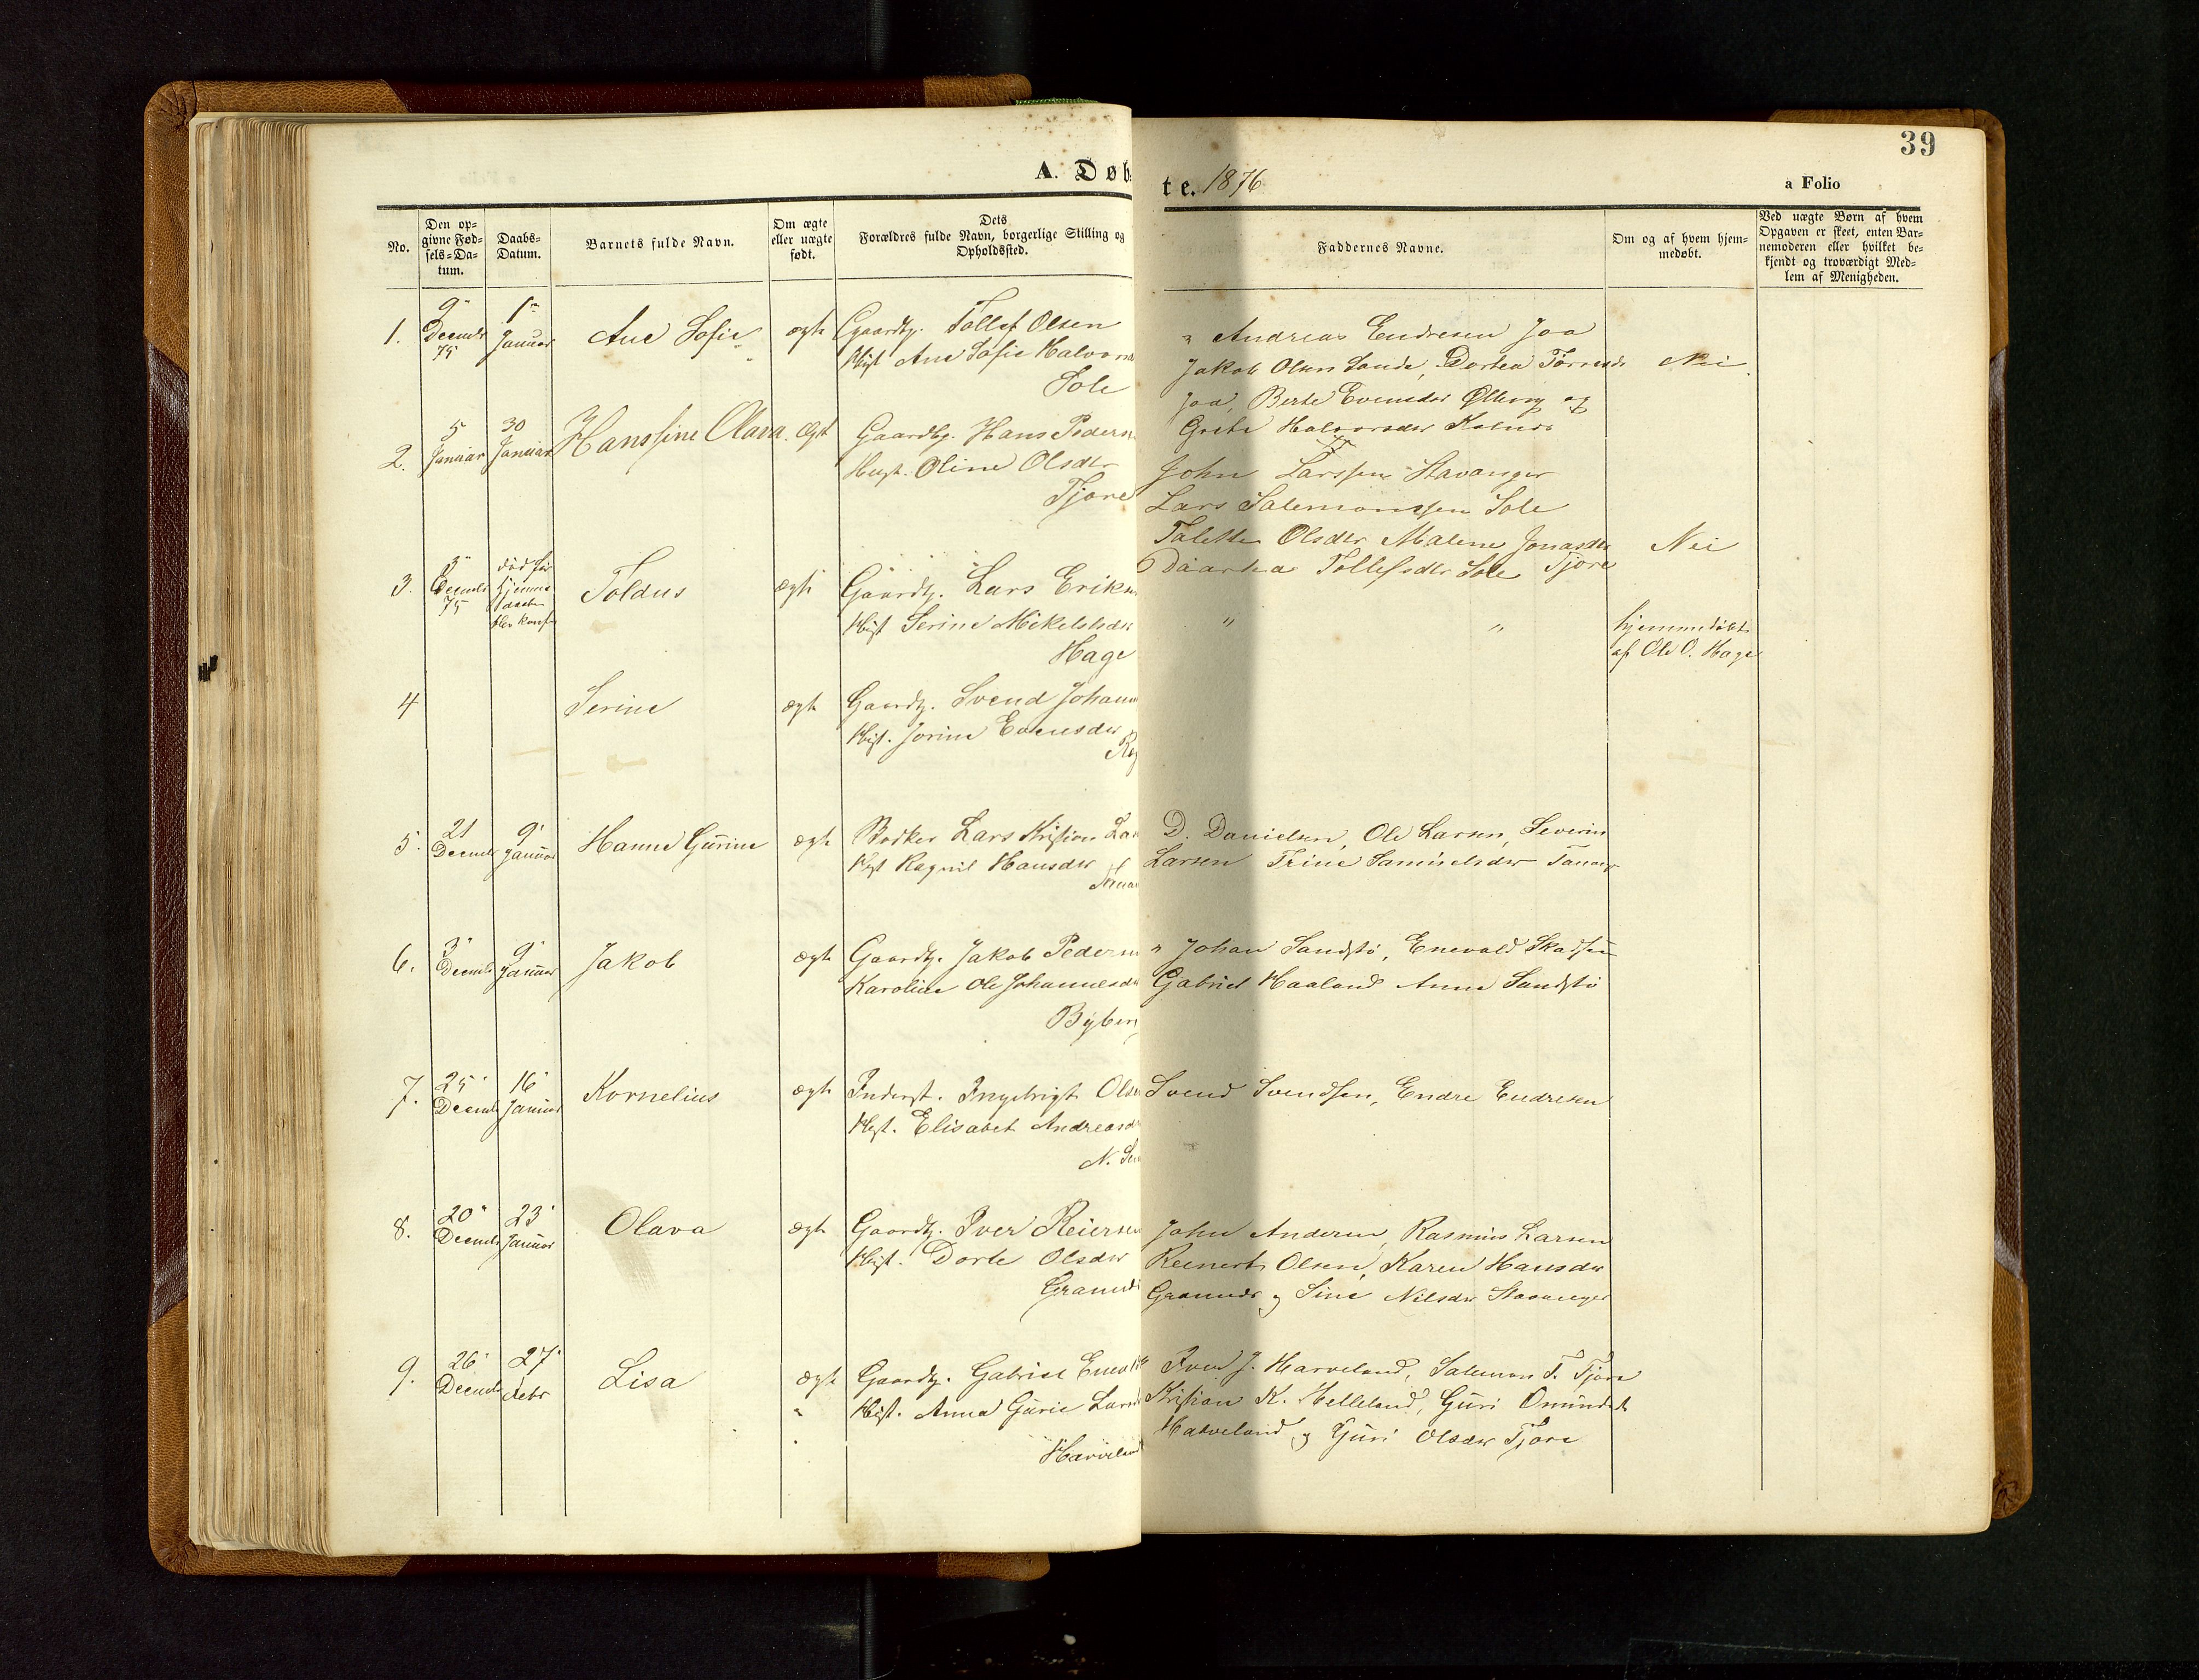 39
A. Døb
te. 1876
a Folio
No.
Den op-
givne Fød-
sels-Da-
tum.
Daabs-
Datum.
Barnets fulde Navn.
Om ægte
eller uægte
født.
Dets
Forældres fulde Navn, borgerlige Stilling og
Opholdssted.
Faddernes Navne.
Om og af hvem hjem-
medøbt.
Ved uægte Børn af hvem
Opgaven er skeet, enten Bar-
nemoderen eller hvilket be-
kjendt og troværdigt Med-
lem af Menigheden.
1.
9
Decmbr
75
1
Januar
Ane Sofie
ægte
Gaardbg. Tollef Olsen
Hust Ane Sofie Halvors
Sole
Andreas Endresen Joa
Jakob Olsen Sande, Dortea
Joa, Berte Evensdr Ølberg og
Grete Halvorsdr
Nei
2.
5
Januar
30
Januar
Hanssine Olava
ægt
Gaardbg. Hans Peders
Hust. Oline Olsdtr
Tjore
John Larssen Stavanger
Lars Salemonssen Sole
Talette Olsdtr Malene Jonasdtr
Tollefsdtr Sole Tjore
Nei
3.
3
Decmbr
75
død før
Toldus
ægte
Gaardbg. Lars Erik
Hust Serine Mikelsdr
Hage
"
"
hjemmedøbt
af Ole O. Hage
4
Serine
ægte
Gaardbg. Svend Johann
Hust. Jorine Evensdr
Reg
5.
21
Decmbr
9
Januar
Hanne Gurine
ægte
Bødker Lars Kristian Lar
Hust Ragnil Hansdr
D. Danielsen, Ole Larsen, Severin
Larsen Trine Samuelsdr Tananger
6.
3
Decmbr
9
Januar
Jakob
ægte
Gaardbg. Jakob Peders
Karoline Ole Johannesd
Byberg
" Johan Sandstø, Enevald Skadsem
Gabriel Haaland Anne Sandstø
7.
25
Decmbr
16
Januar
Kornelius
ægte
Inderst. Ingebrigt Olse
Hust. Elisabet Andreasd
Svend Svendsen, Endre Endresen
8.
20
Decmbr
23
Januar
Olava
ægte
Gaardbg. Iver Reiersen
Hust. Dorte Olsdr
Grannes
John Andersen, Rasmus Larsen
Reinert Olsen, Karen Hansdr
Grannes og Sine Nilsdr Stavanger
9.
26
Decmbr
27
Febr
Lisa
ægte
Gaardbg. Gabriel Enevald
Hust. Anna Gurie Lars
Harveland
Iver J. Harveland, Salemon T. Tjora
Kristian K. Helleland, Guri Omundsdt
Harveland og Guri Olsdr Tjora